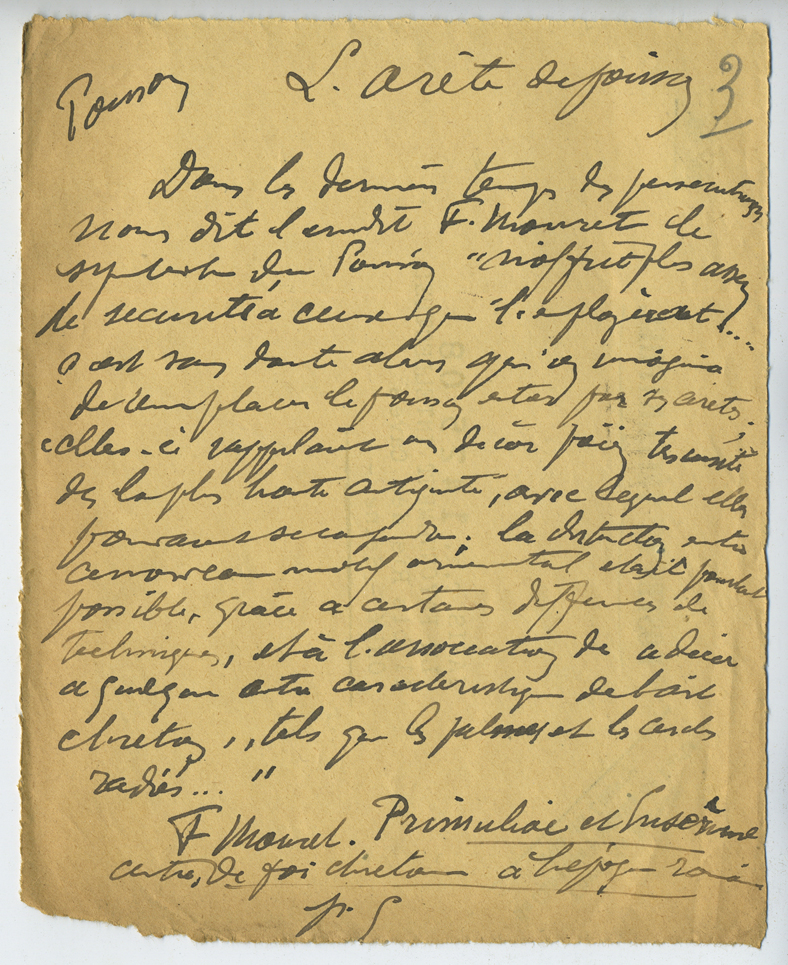 Poisson
L'arête de poisson
3
Dans les derniers temps des persecutions
nous dit l'erudit F. Mouret le
symbole du Poisson "n'offrit plus assez
de securité à ceux qui l'employèrent...
c'est sans doute alors qu'on imagina
de remplacer le poisson entier par ses arêtes;
celles-ci rappelant un décor païen très usité
dès la plus haute antiquité, avec lequel elles
pouvaient se confondre. La distinction entre
ce nouveau motif ornemental était pourtant
possible, grâce à certaines différences de
techniques, et à l'association de ce décor
a quelque autre caracteristique de l'art
chretien, tels que les palmes et les cercles
radiés..."
F Mouret. et
centres de foi chretienne à l'epoque romaine
p. 5